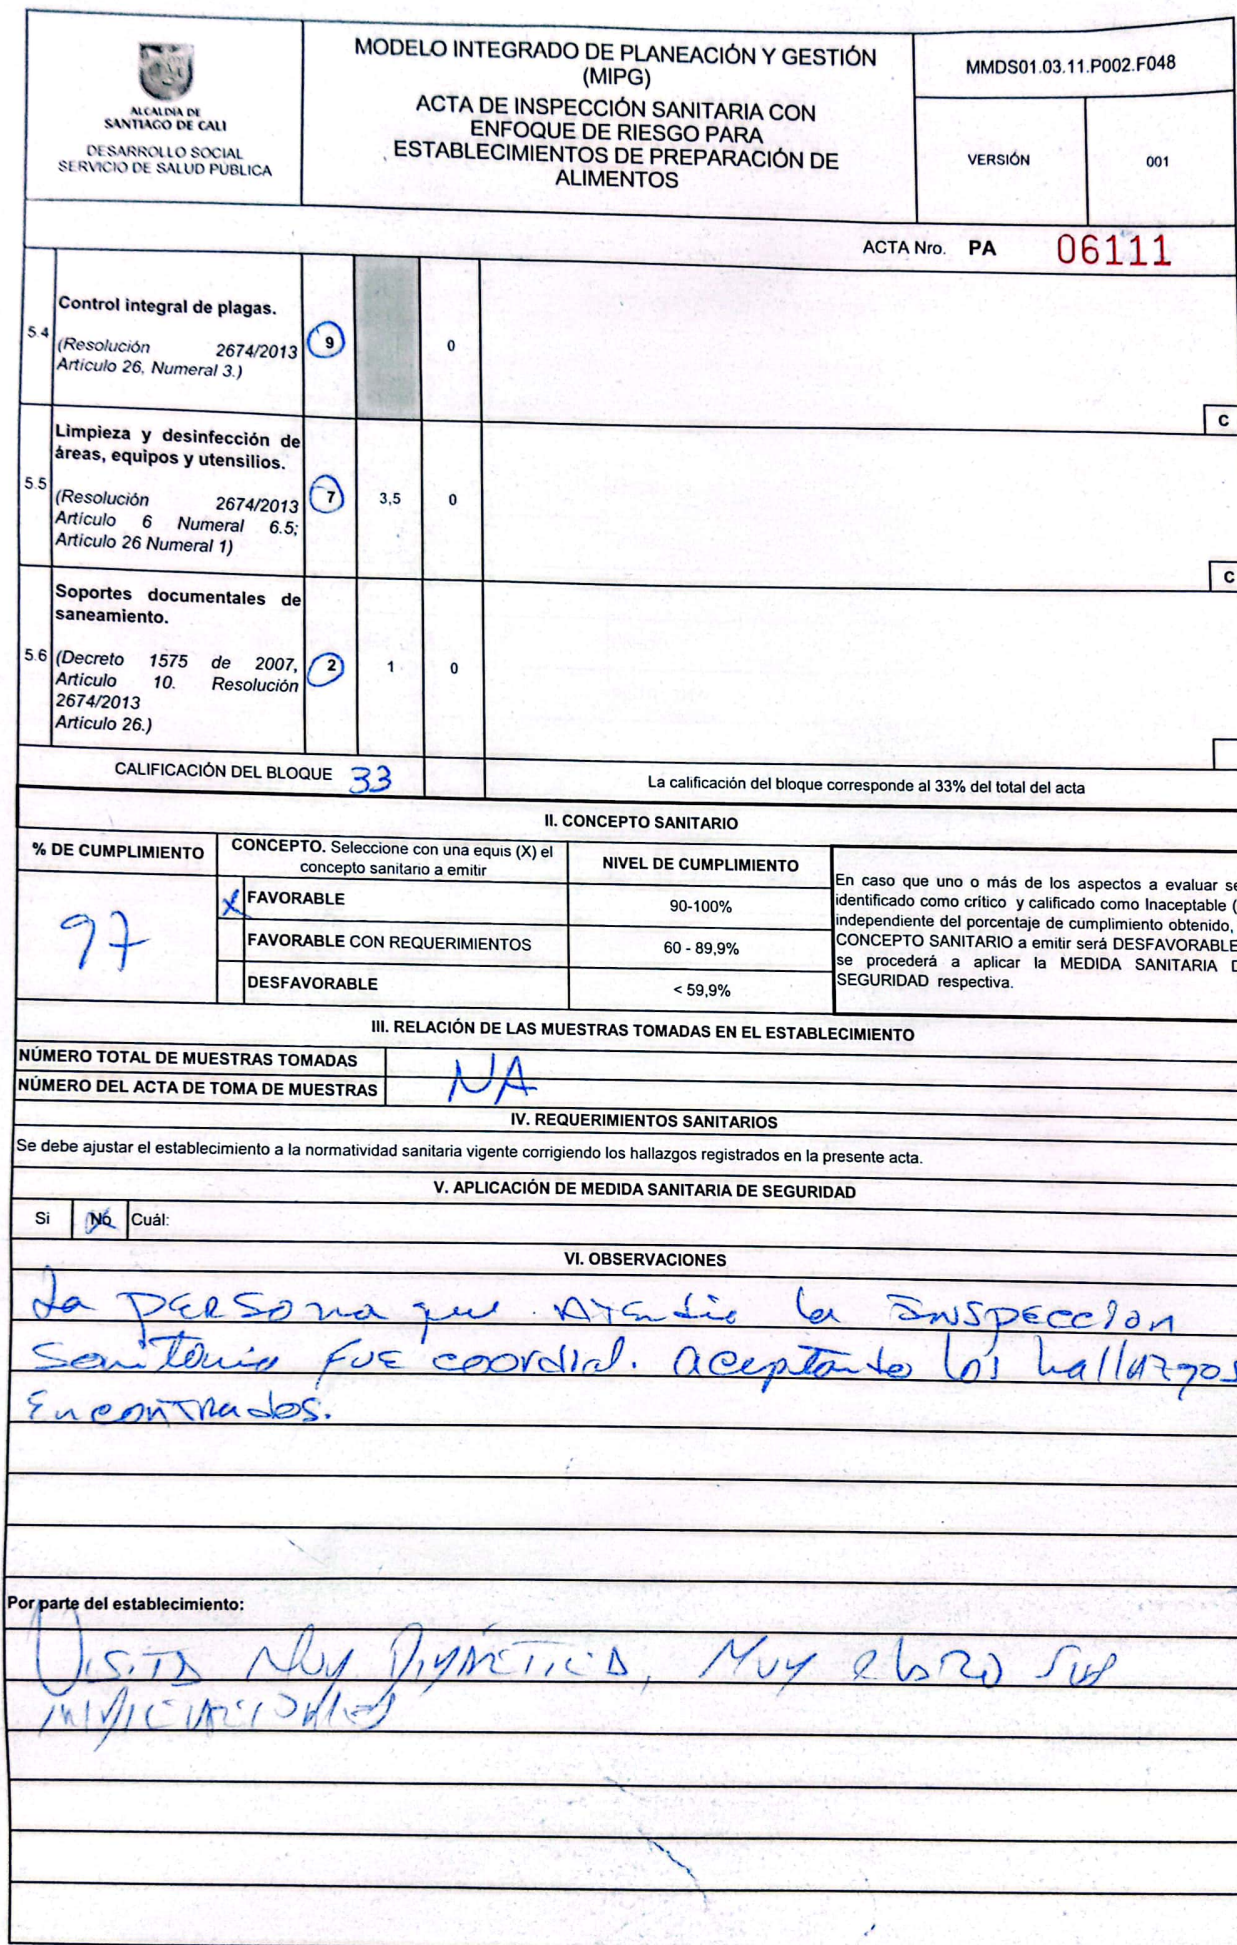 ALCALDÍA DE
SANTIAGO DE CALI
DESARROLLO SOCIAL
SERVICIO DE SALUD PÚBLICA
MODELO INTEGRADO DE PLANEACIÓN Y GESTIÓN
(MIPG)
ACTA DE INSPECCIÓN SANITARIA CON
ENFOQUE DE RIESGO PARA
ESTABLECIMIENTOS DE PREPARACIÓN DE
ALIMENTOS
MMDS01.03.11.P002.F048
VERSIÓN 001
ACTA Nro. PA 06111
5.4 Control integral de plagas.
(Resolución 2674/2013
Artículo 26, Numeral 3.)
9 0
C
5.5 Limpieza y desinfección de
áreas, equipos y utensilios.
(Resolución 2674/2013
Artículo 6 Numeral 6.5;
Artículo 26 Numeral 1)
7 3,5 0
C
5.6 Soportes documentales de
saneamiento.
(Decreto 1575 de 2007,
Artículo 10. Resolución
2674/2013
Artículo 26.)
2 1 0
CALIFICACIÓN DEL BLOQUE 33
La calificación del bloque corresponde al 33% del total del acta
II. CONCEPTO SANITARIO
% DE CUMPLIMIENTO
97
CONCEPTO. Seleccione con una equis (X) el
concepto sanitario a emitir
NIVEL DE CUMPLIMIENTO
X FAVORABLE 90-100%
FAVORABLE CON REQUERIMIENTOS 60 - 89,9%
DESFAVORABLE < 59,9%
En caso que uno o más de los aspectos a evaluar se
identificado como crítico y calificado como Inaceptable (
independiente del porcentaje de cumplimiento obtenido,
CONCEPTO SANITARIO a emitir será DESFAVORABLE
se procederá a aplicar la MEDIDA SANITARIA D
SEGURIDAD respectiva.
III. RELACIÓN DE LAS MUESTRAS TOMADAS EN EL ESTABLECIMIENTO
NÚMERO TOTAL DE MUESTRAS TOMADAS
NÚMERO DEL ACTA DE TOMA DE MUESTRAS
NA
IV. REQUERIMIENTOS SANITARIOS
Se debe ajustar el establecimiento a la normatividad sanitaria vigente corrigiendo los hallazgos registrados en la presente acta.
V. APLICACIÓN DE MEDIDA SANITARIA DE SEGURIDAD
Si No Cuál:
VI. OBSERVACIONES
La persona que atendio la inspeccion
sanitaria fue coordial. aceptando los hallazgos
encontrados.
Por parte del establecimiento:
Visita muy didáctica, muy claro sus